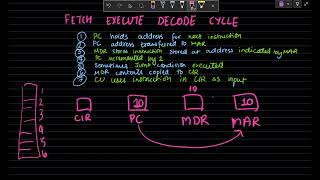 FETCH EXECUTE DECODE CYCLE
1 PC holds address for next instruction
2 PC address transferred to MAR
3 MDR stores instruction stored at address indicated by MAR
4 PC incremented by 1
5 Sometimes Jump condition executed
6 MDR contents copied to CIR
7 CU uses instruction in CIR as input
10
10 10
CIR PC MDR MAR
1
2
3
4
5
6